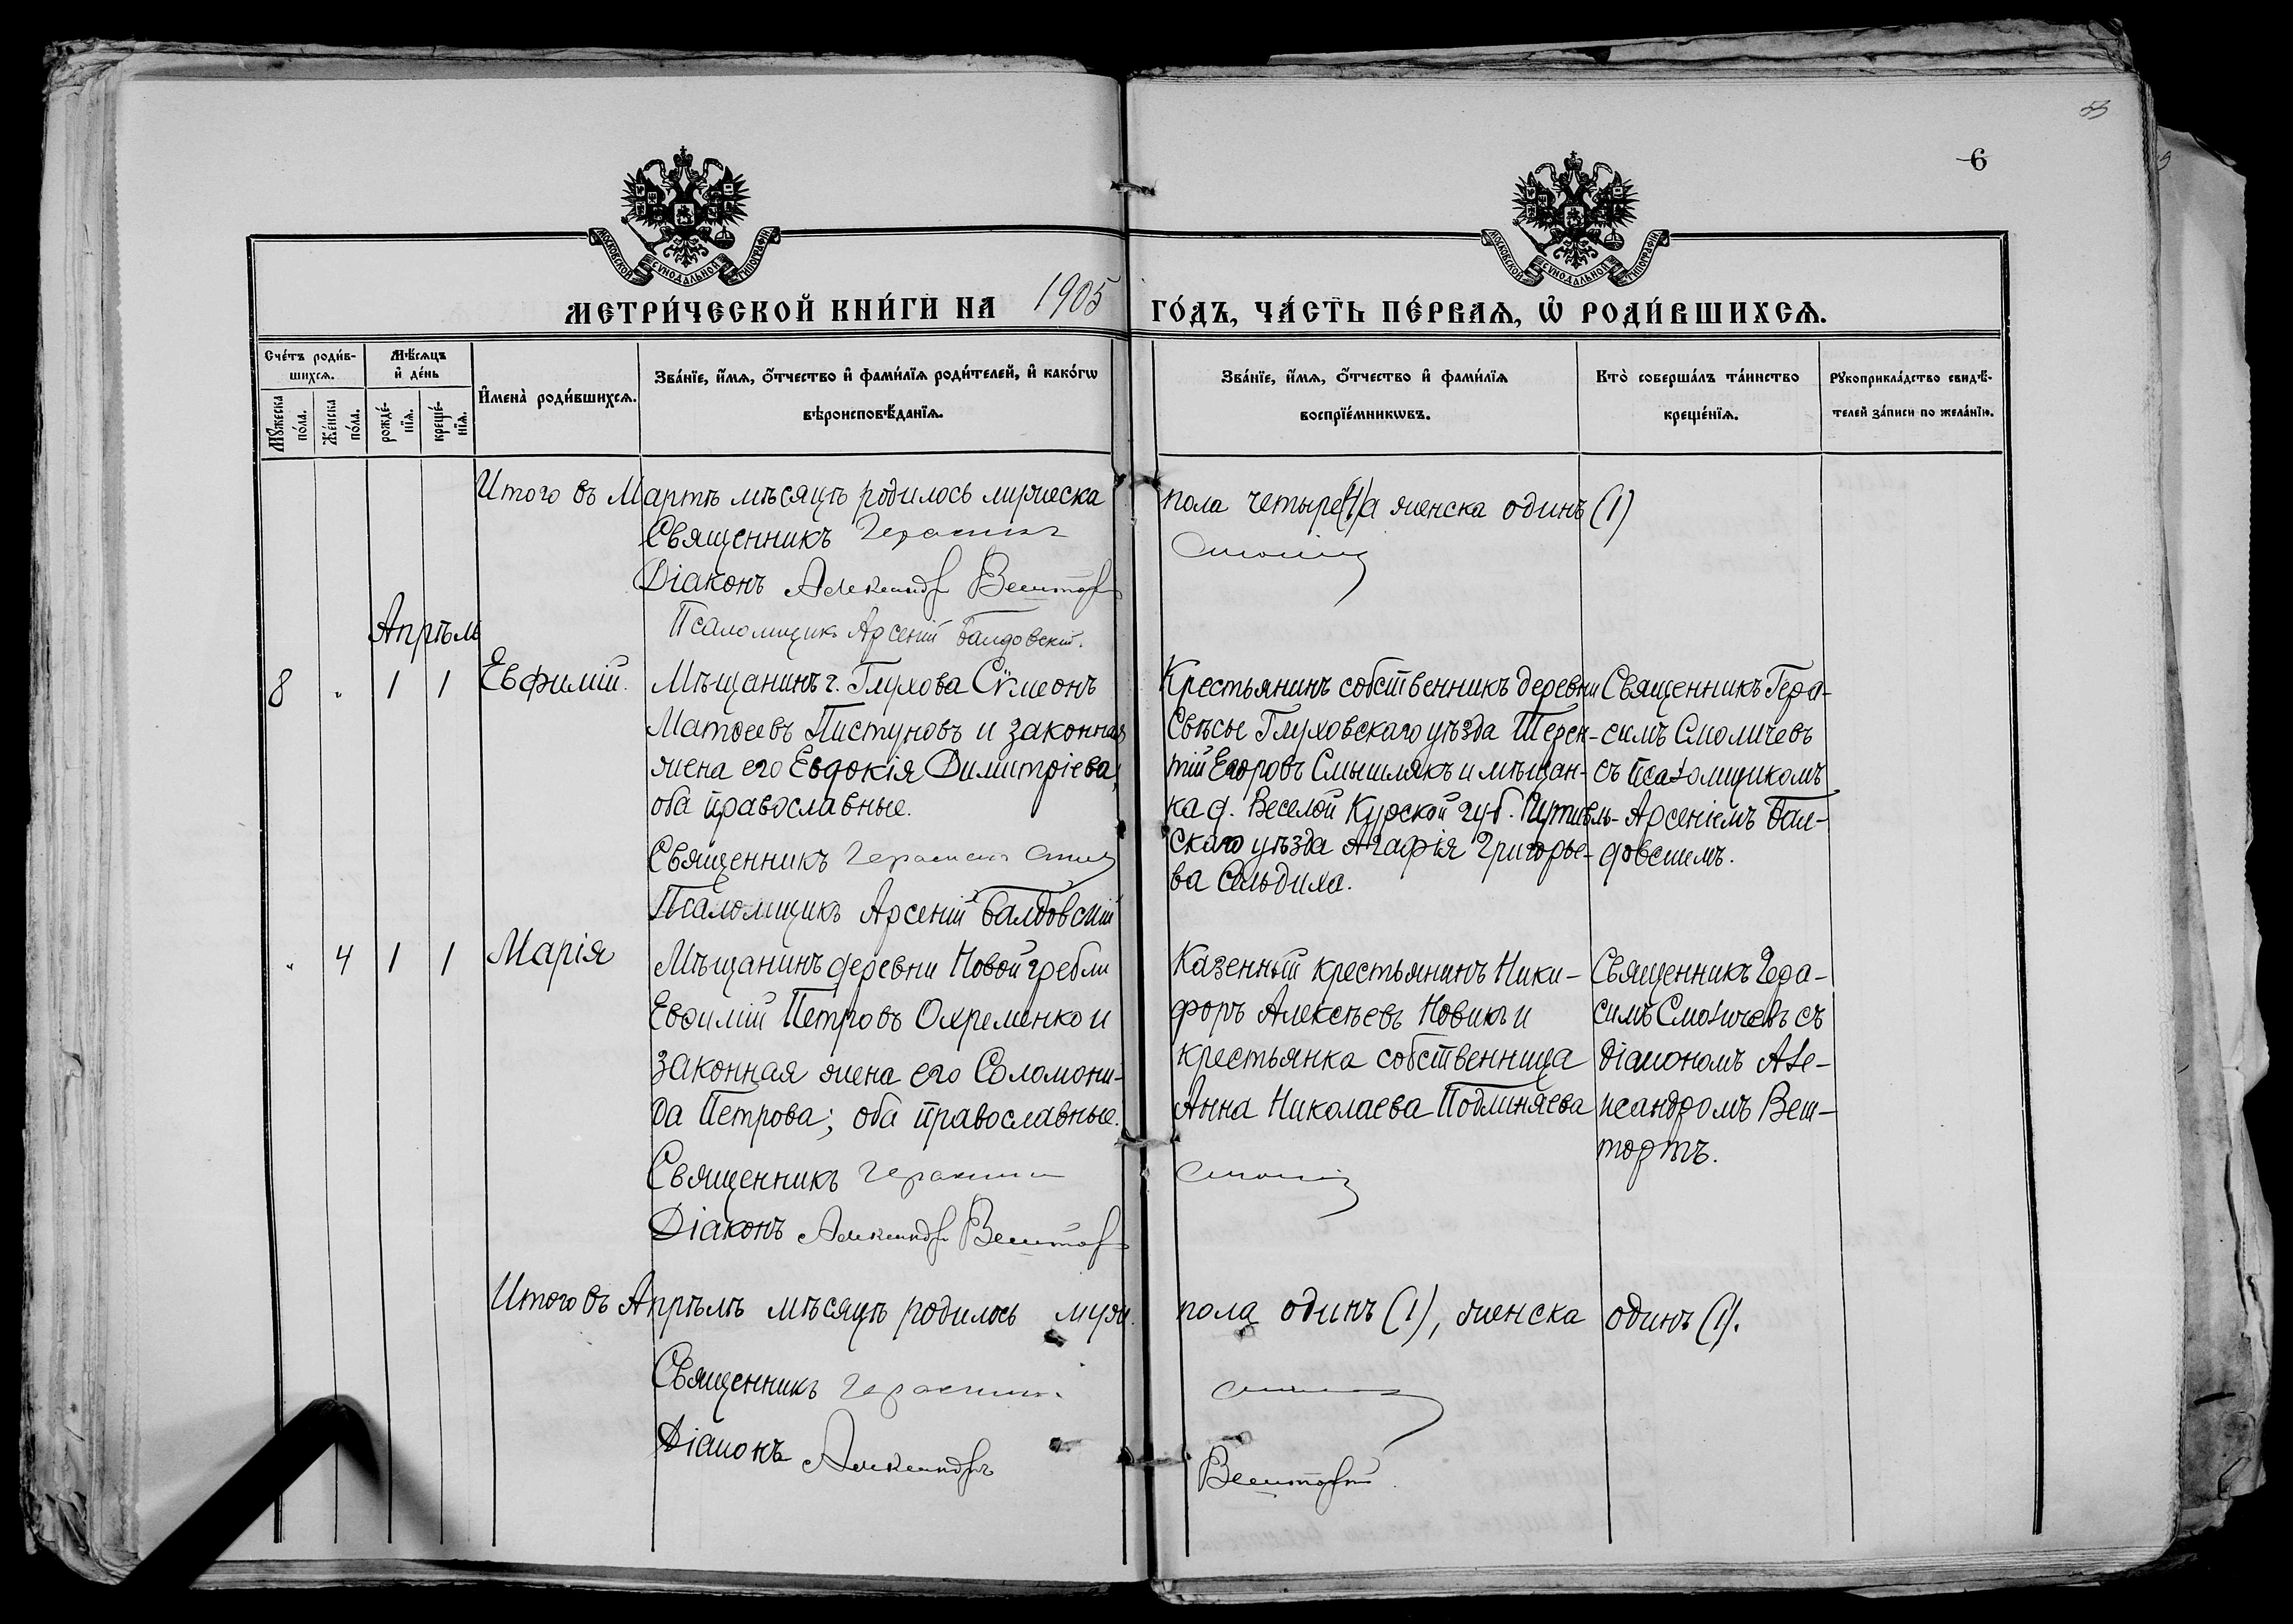 53
6
МОСКОВСКОЙ СѴНОДАЛЬНОЙ ТИПОГРАФІИ
МОСКОВСКОЙ СѴНОДАЛЬНОЙ ТИПОГРАФІИ
МЕТРИ́ЧЕСКОЙ КНИ́ГИ НА 1905 ГО́ДЪ, ЧА́СТЬ ПЕ́РВАѦ, Ѡ҆ РОДИ́ВШИХСѦ.
Сче́тъ роди́в-
шихсѧ.
Мѣ́сѧцъ
и҆ де́нь
Мꙋ́жеска
по́ла.
Же́нска
по́ла.
рожде́-
нїѧ.
креще́-
нїѧ.
И҆мена̀ роди́вшихсѧ.
Зва́нїе, и҆́мѧ, ѻ҆́тчество и҆ фами́лїѧ роди́телей, и҆ како́гѡ
вѣроисповѣ́данїѧ.
Зва́нїе, и҆́мѧ, ѻ҆́тчество и҆ фами́лїѧ
воспрїе́мникѡвъ.
Кто̀ соверша́лъ та́инство
креще́нїѧ.
Рꙋкоприкла́дство свидѣ́-
телей за́писи по жела́нїю.
Итого въ Мартѣ мѣсяцѣ родилось мужеска пола четыре (4) а женска одинъ (1)
Священникъ Герасимъ
Діаконъ Александръ Вештортъ
Псаломщикъ Арсеній Балдовскій.
Апрѣль
8 " 1 1 Евфимій.
Мѣщанинъ г. Глухова Сѷмеонъ
Матѳеевъ Пистуновъ и законная
жена его Евдокія Димитріева,
оба православные.
Священникъ Герасимъ
Псаломщикъ Арсеній Балдовскій
Крестьянинъ собственникъ деревни
Свѣсы Глуховскаго уѣзда Терен-
тій Егоровъ Смышлякъ и мѣщан-
ка д. Веселой Курской губ. Путивль-
скаго уѣзда Агафія Григорье-
ва
Священникъ Гера-
симъ Смоличевъ
съ псаломщикомъ
Арсеніемъ Бал-
довскимъ.
" 4 1 1 Марія
Мѣщанинъ деревни Новой гребли
Евѳимій Петровъ Охременко и
законная жена его Соломони-
да Петрова; оба православные.
Священникъ Герасимъ
Діаконъ Александръ Вештортъ
Казенный крестьянинъ Ники-
форъ Алексѣевъ Новикъ и
крестьянка собственница
Анна Николаева Подлиняева
Священникъ Гера-
симъ Смоличевъ съ
діакономъ Але-
ксандромъ Веш-
тортъ.
Итого въ Апрѣлѣ мѣсяцѣ родилось муж. пола одинъ (1), женска одинъ (1).
Священникъ Герасимъ
Діаконъ Александръ Вештортъ